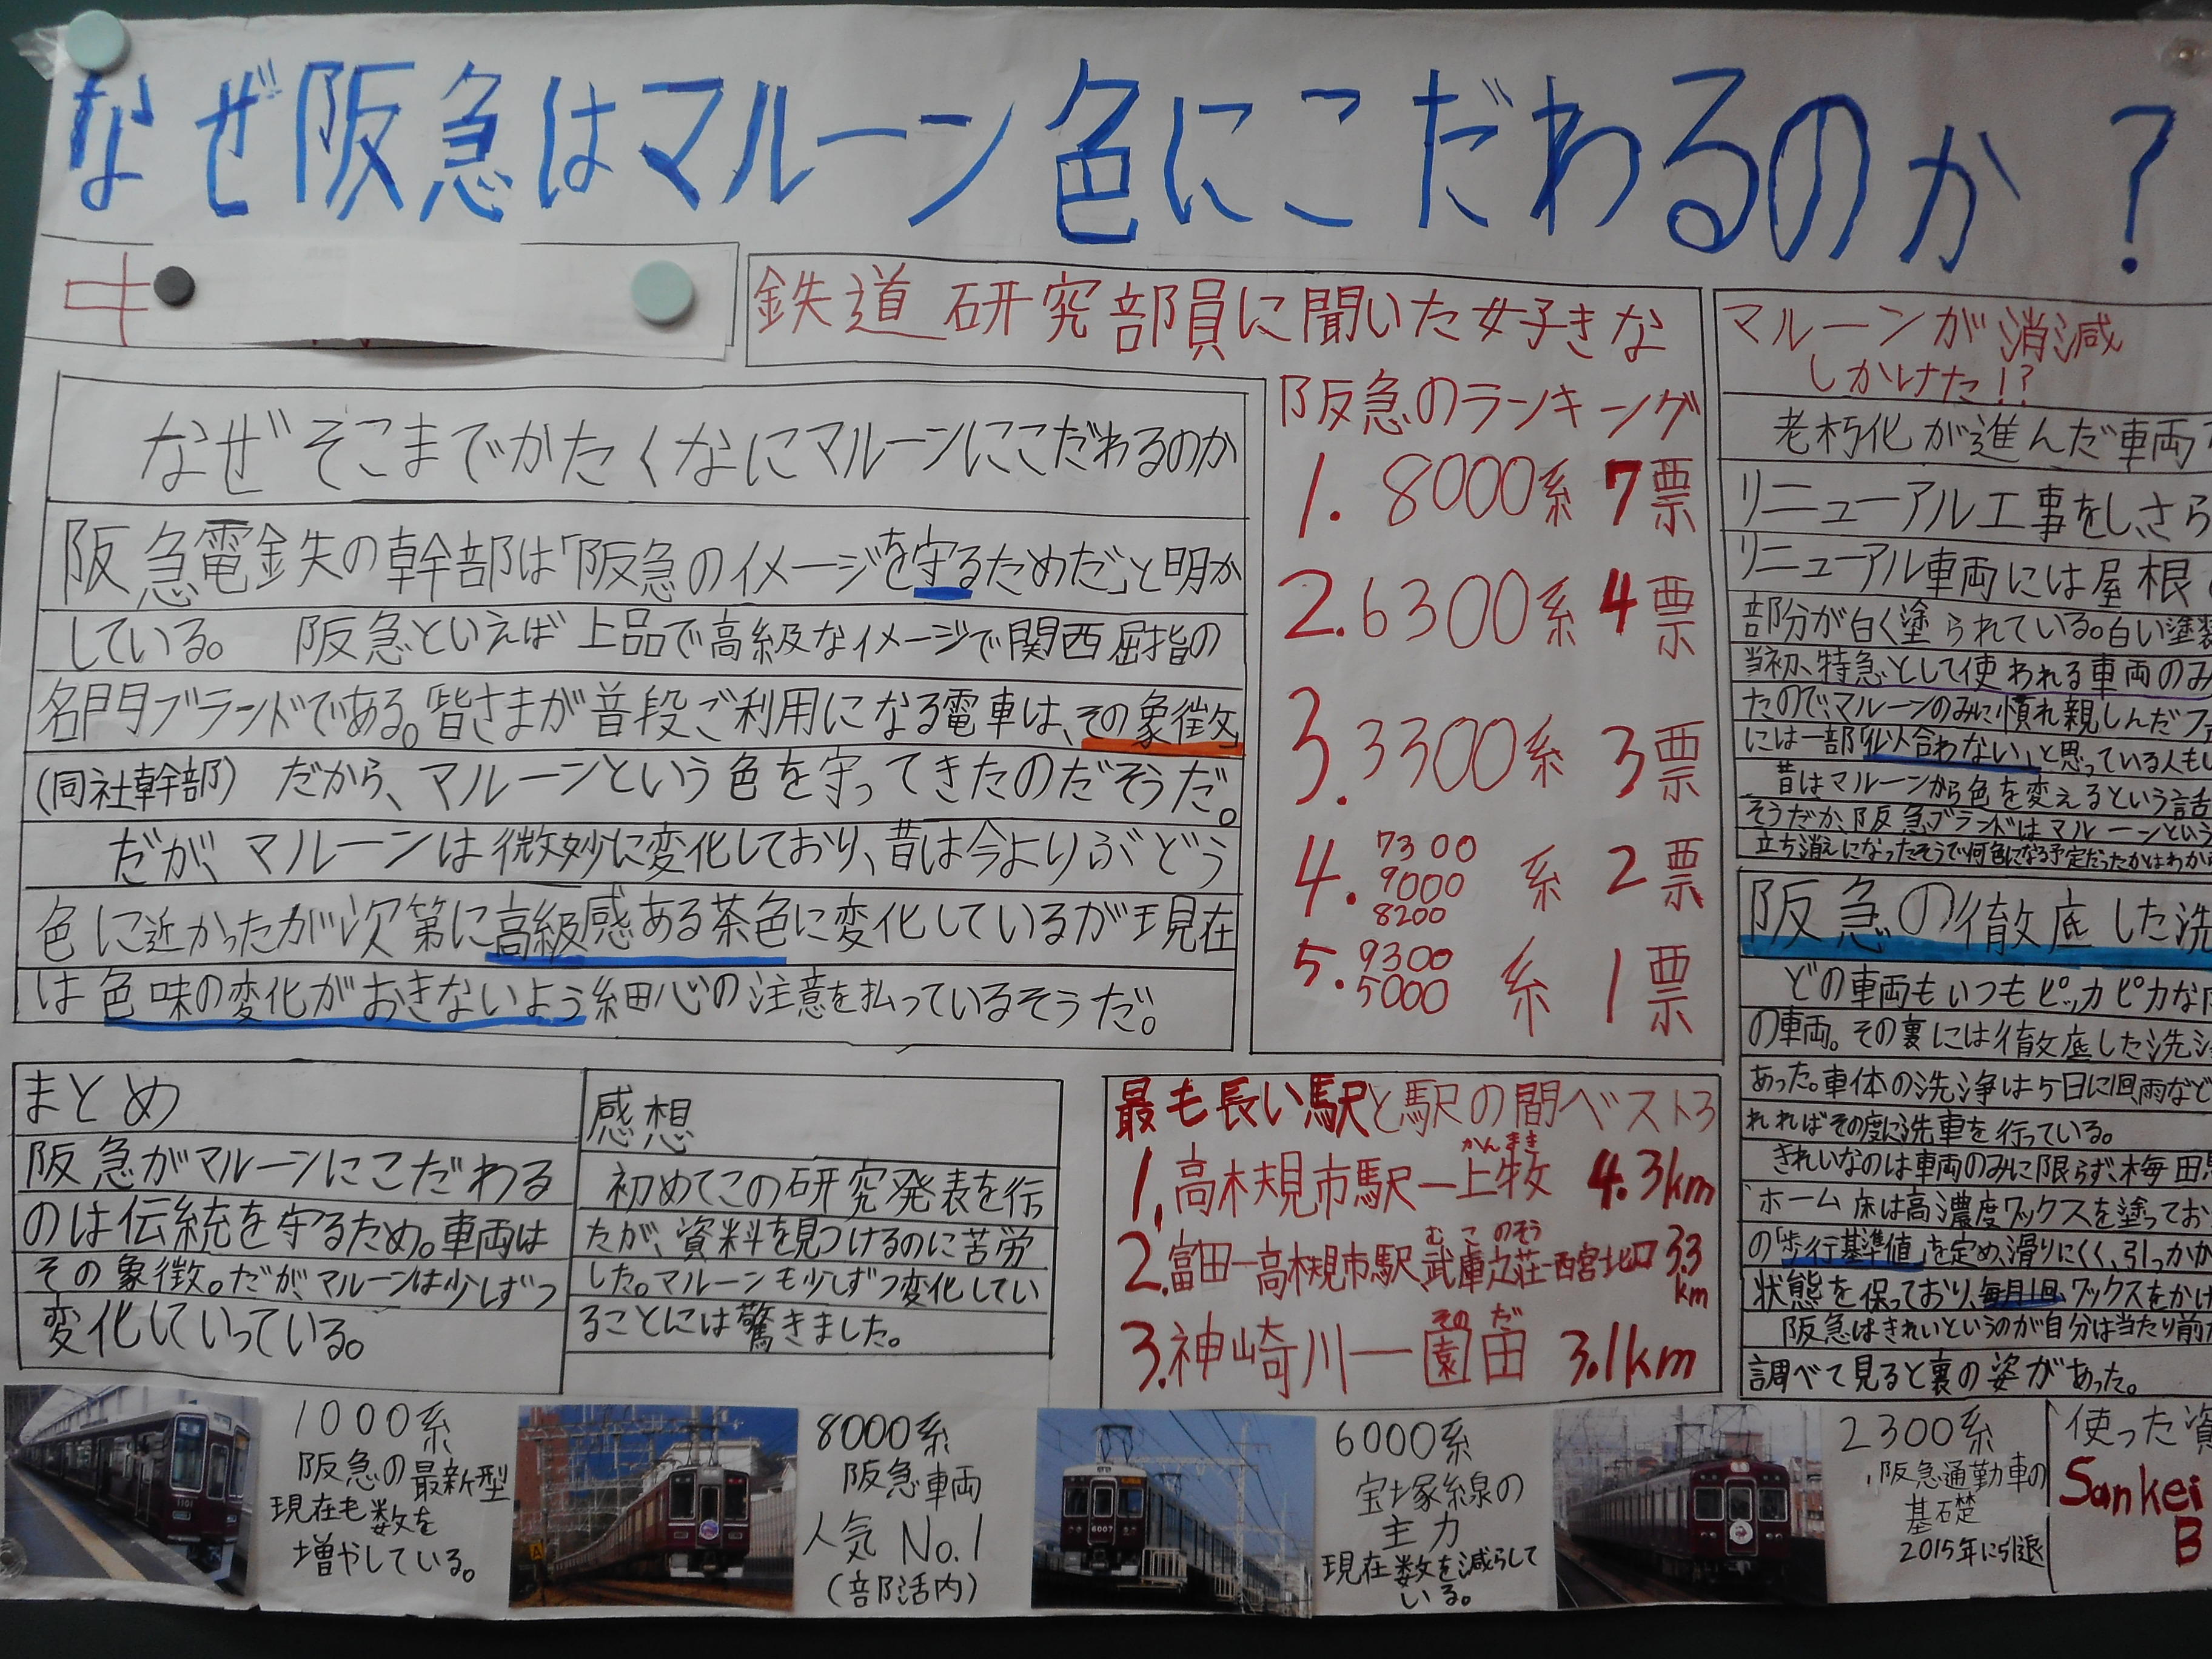 なぜ阪急はマルーン色にこだわるのか？
中
なぜそこまでかたくなにマルーンにこだわるのか
阪急電鉄の幹部は「阪急のイメージを守るためだ」と明か
している。 阪急といえば上品で高級なイメージで関西屈指の
名門ブランドである。「皆さまが普段ご利用になる電車は、その象徴」
(同社幹部) だから、マルーンという色を守ってきたのだそうだ。
だが、マルーンは微妙に変化しており、昔は今よりぶどう
色に近かったが次第に高級感ある茶色に変化しているが現在
は色味の変化がおきないよう細心の注意を払っているそうだ。
まとめ
阪急がマルーンにこだわる
のは伝統を守るため。車両は
その象徴。だが、マルーンは少しずつ
変化していっている。
感想
初めてこの研究発表を行
たが、資料を見つけるのに苦労
した。マルーンも少しずつ変化してい
ることには驚きました。
鉄道研究部員に聞いた好きな
阪急のランキング
1. 8000系 7票
2. 6300系 4票
3. 3300系 3票
4. 7300 9000 8200 系 2票
5. 9300 5000 系 1票
最も長い駅と駅の間ベスト3
1. 高槻市駅ー上牧 4.3km
かんまき
2. 富田ー高槻市駅、武庫之荘ー西宮北口 3.3km
むこのそう
3. 神崎川ー園田 3.1km
そのだ
マルーンが消滅
しかけた!?
老朽化が進んだ車両
リニューアル工事をし、さら
リニューアル車両には屋根
部分が白く塗られている。白い塗装
当初、特急として使われる車両のみ
たので、マルーンのみに慣れ親しんだファ
には一部「似合わない」と思っている人も
昔はマルーンから色を変えるという話
そうだが、阪急ブランドはマルーンという
立ち消えになったそうで何色になる予定だったかはわか
阪急の徹底した洗
どの車両もいつもピッカピカな
の車両。その裏には徹底した洗
あった。車体の洗浄は5日に1回、雨など
れればその度に洗車を行っている。
きれいなのは車両のみに限らず、梅田
ホーム床は高濃度ワックスを塗ってお
の「歩行基準値」を定め、滑りにくく、引っかか
状態を保っており、毎月1回、ワックスをかけ
阪急はきれいというのが自分は当たり前
調べて見ると裏の姿があった。
1000系
阪急の最新型
現在も数を
増やしている。
8000系
阪急車両
人気 No.1
(部活内)
6000系
宝塚線の
主力
現在数を減らして
いる。
2300系
阪急通勤車の
基礎
2015年に引退
使った資
Sankei
B
1101
6007